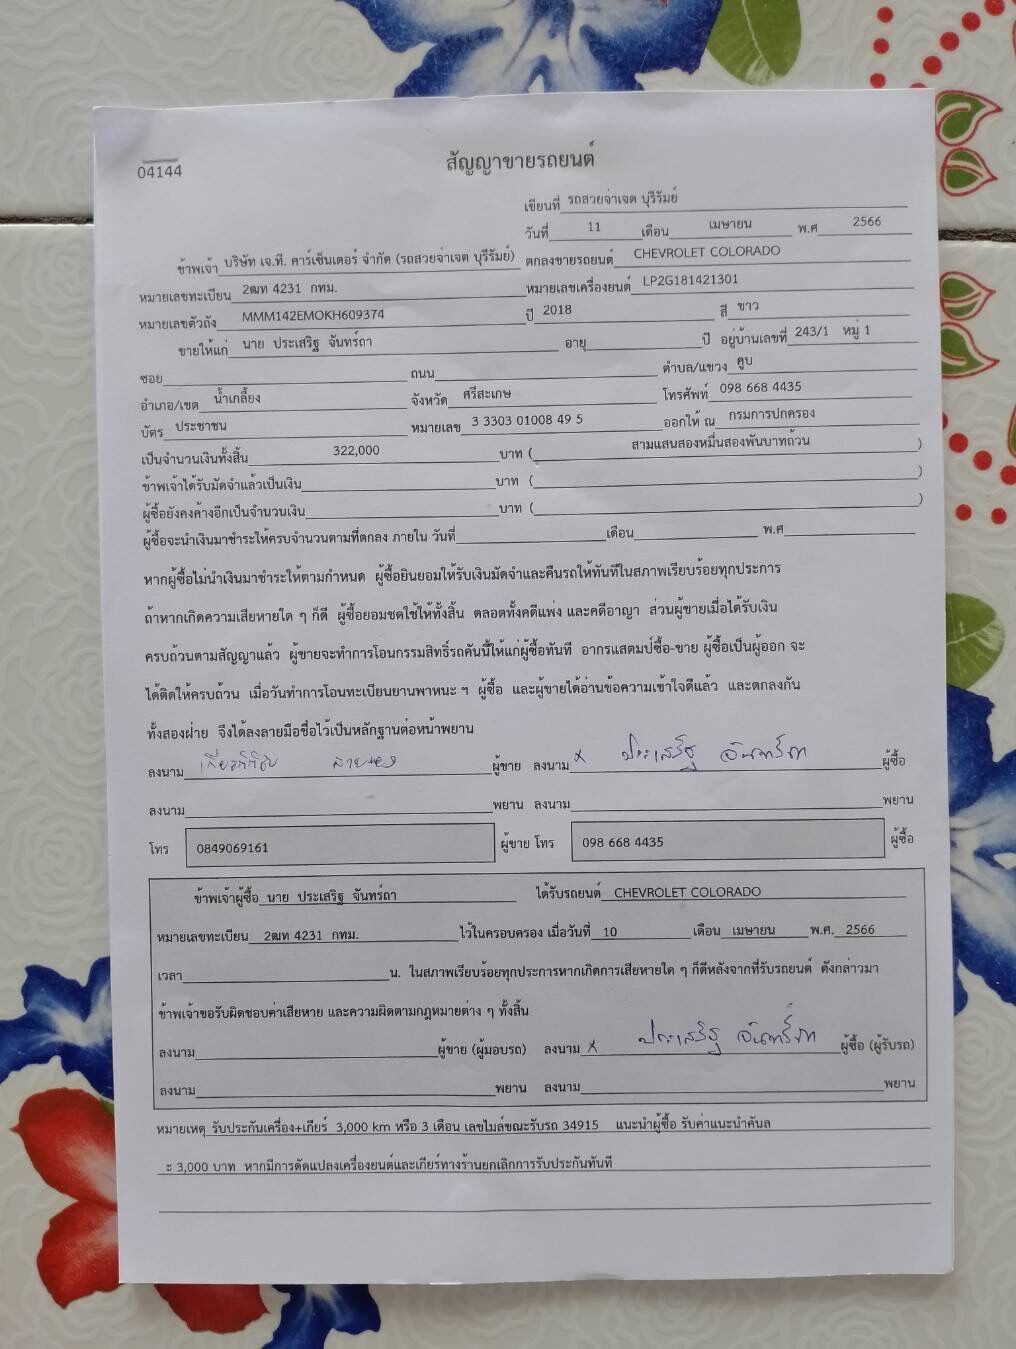 04144
สัญญาขายรถยนต์
เขียนที่ รถสวยจ่าเจต บุรีรัมย์
วันที่ 11 เดือน เมษายน พ.ศ 2566
ข้าพเจ้า บริษัท เจ.ที. คาร์เซ็นเตอร์ จำกัด (รถสวยจ่าเจต บุรีรัมย์) ตกลงขายรถยนต์ CHEVROLET COLORADO
หมายเลขทะเบียน 2ฒท 4231 กทม. หมายเลขเครื่องยนต์ LP2G181421301
หมายเลขตัวถัง MMM142EMOKH609374 ปี 2018 สี ขาว
ขายให้แก่ นาย ประเสริฐ จันทร์ถา อายุ ปี อยู่บ้านเลขที่ 243/1 หมู่ 1
ซอย ถนน ตำบล/แขวง คูบ
อำเภอ/เขต น้ำเกลี้ยง จังหวัด ศรีสะเกษ โทรศัพท์ 098 668 4435
บัตร ประชาชน หมายเลข 3 3303 01008 49 5 ออกให้ ณ กรมการปกครอง
เป็นจำนวนเงินทั้งสิ้น 322,000 บาท ( สามแสนสองหมื่นสองพันบาทถ้วน )
ข้าพเจ้าได้รับมัดจำแล้วเป็นเงิน บาท ( )
ผู้ซื้อยังคงค้างอีกเป็นจำนวนเงิน บาท ( )
ผู้ซื้อจะนำเงินมาชำระให้ครบจำนวนตามที่ตกลง ภายใน วันที่ เดือน พ.ศ
หากผู้ซื้อไม่นำเงินมาชำระให้ตามกำหนด ผู้ซื้อยินยอมให้รับเงินมัดจำและคืนรถให้ทันทีในสภาพเรียบร้อยทุกประการ
ถ้าหากเกิดความเสียหายใด ๆ ก็ดี ผู้ซื้อยอมชดใช้ให้ทั้งสิ้น ตลอดทั้งคดีแพ่ง และคดีอาญา ส่วนผู้ขายเมื่อได้รับเงิน
ครบถ้วนตามสัญญาแล้ว ผู้ขายจะทำการโอนกรรมสิทธิ์รถคันนี้ให้แก่ผู้ซื้อทันที อากรแสตมป์ซื้อ-ขาย ผู้ซื้อเป็นผู้ออก จะ
ได้ติดให้ครบถ้วน เมื่อวันทำการโอนทะเบียนยานพาหนะ ฯ ผู้ซื้อ และผู้ขายได้อ่านข้อความเข้าใจดีแล้ว และตกลงกัน
ทั้งสองฝ่าย จึงได้ลงลายมือชื่อไว้เป็นหลักฐานต่อหน้าพยาน
ลงนาม ผู้ขาย ลงนาม x ประเสริฐ จันทร์ถา ผู้ซื้อ
ลงนาม พยาน ลงนาม พยาน
โทร 0849069161 ผู้ขาย โทร 098 668 4435 ผู้ซื้อ
ข้าพเจ้าผู้ซื้อ นาย ประเสริฐ จันทร์ถา ได้รับรถยนต์ CHEVROLET COLORADO
หมายเลขทะเบียน 2ฒท 4231 กทม. ไว้ในครอบครอง เมื่อวันที่ 10 เดือน เมษายน พ.ศ. 2566
เวลา น. ในสภาพเรียบร้อยทุกประการหากเกิดการเสียหายใด ๆ ก็ดีหลังจากที่รับรถยนต์ ดังกล่าวมา
ข้าพเจ้าขอรับผิดชอบค่าเสียหาย และความผิดตามกฎหมายต่าง ๆ ทั้งสิ้น
ลงนาม ผู้ขาย (ผู้มอบรถ) ลงนาม x ประเสริฐ จันทร์ถา ผู้ซื้อ (ผู้รับรถ)
ลงนาม พยาน ลงนาม พยาน
หมายเหตุ รับประกันเครื่อง+เกียร์ 3,000 km หรือ 3 เดือน เลขไมล์ขณะรับรถ 34915 แนะนำผู้ซื้อ รับค่าแนะนำคันล
ะ 3,000 บาท หากมีการดัดแปลงเครื่องยนต์และเกียร์ทางร้านยกเลิกการรับประกันทันที